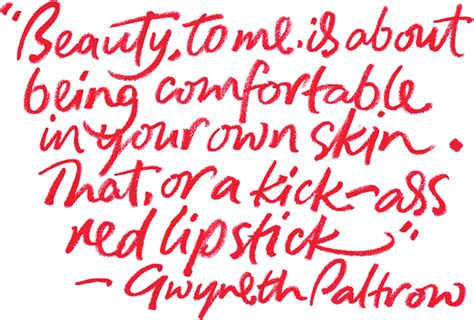 "Beauty, to me, is about
being comfortable
in your own skin.
That, or a kick-ass
red lipstick"
– Gwyneth Paltrow